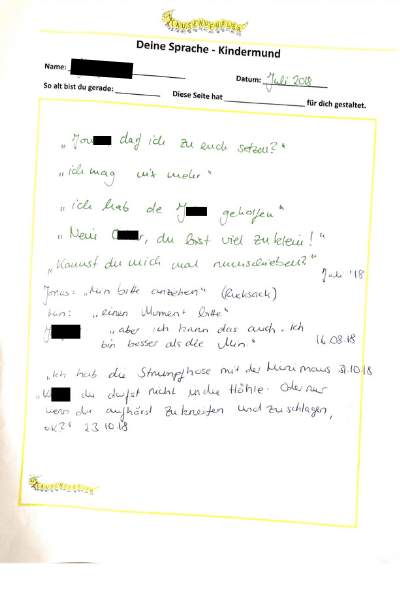 TAUSENDFÜßLER
Deine Sprache - Kindermund
Name:
Datum: Juli 2018
So alt bist du gerade:
Diese Seite hat für dich gestaltet.
darf ich zu euch setzen?"
„ich mag nix mehr"
„ich hab de geholfen"
„Nein , du bist viel zu klein!"
„Kannst du mich mal rumschieben?"
Juli '18
Jonas: „Min bitte anziehen" (Rucksack)
„einen Moment bitte"
„aber ich kann das auch. Ich
bin besser als die Min."
16.08.18
„Ich hab die Strumpfhose mit der Minimaus
.10.18
du darfst nicht in die Höhle. Oder nur
wenn du aufhörst zu kneifen und zu schlagen,
ok?" 23.10.18